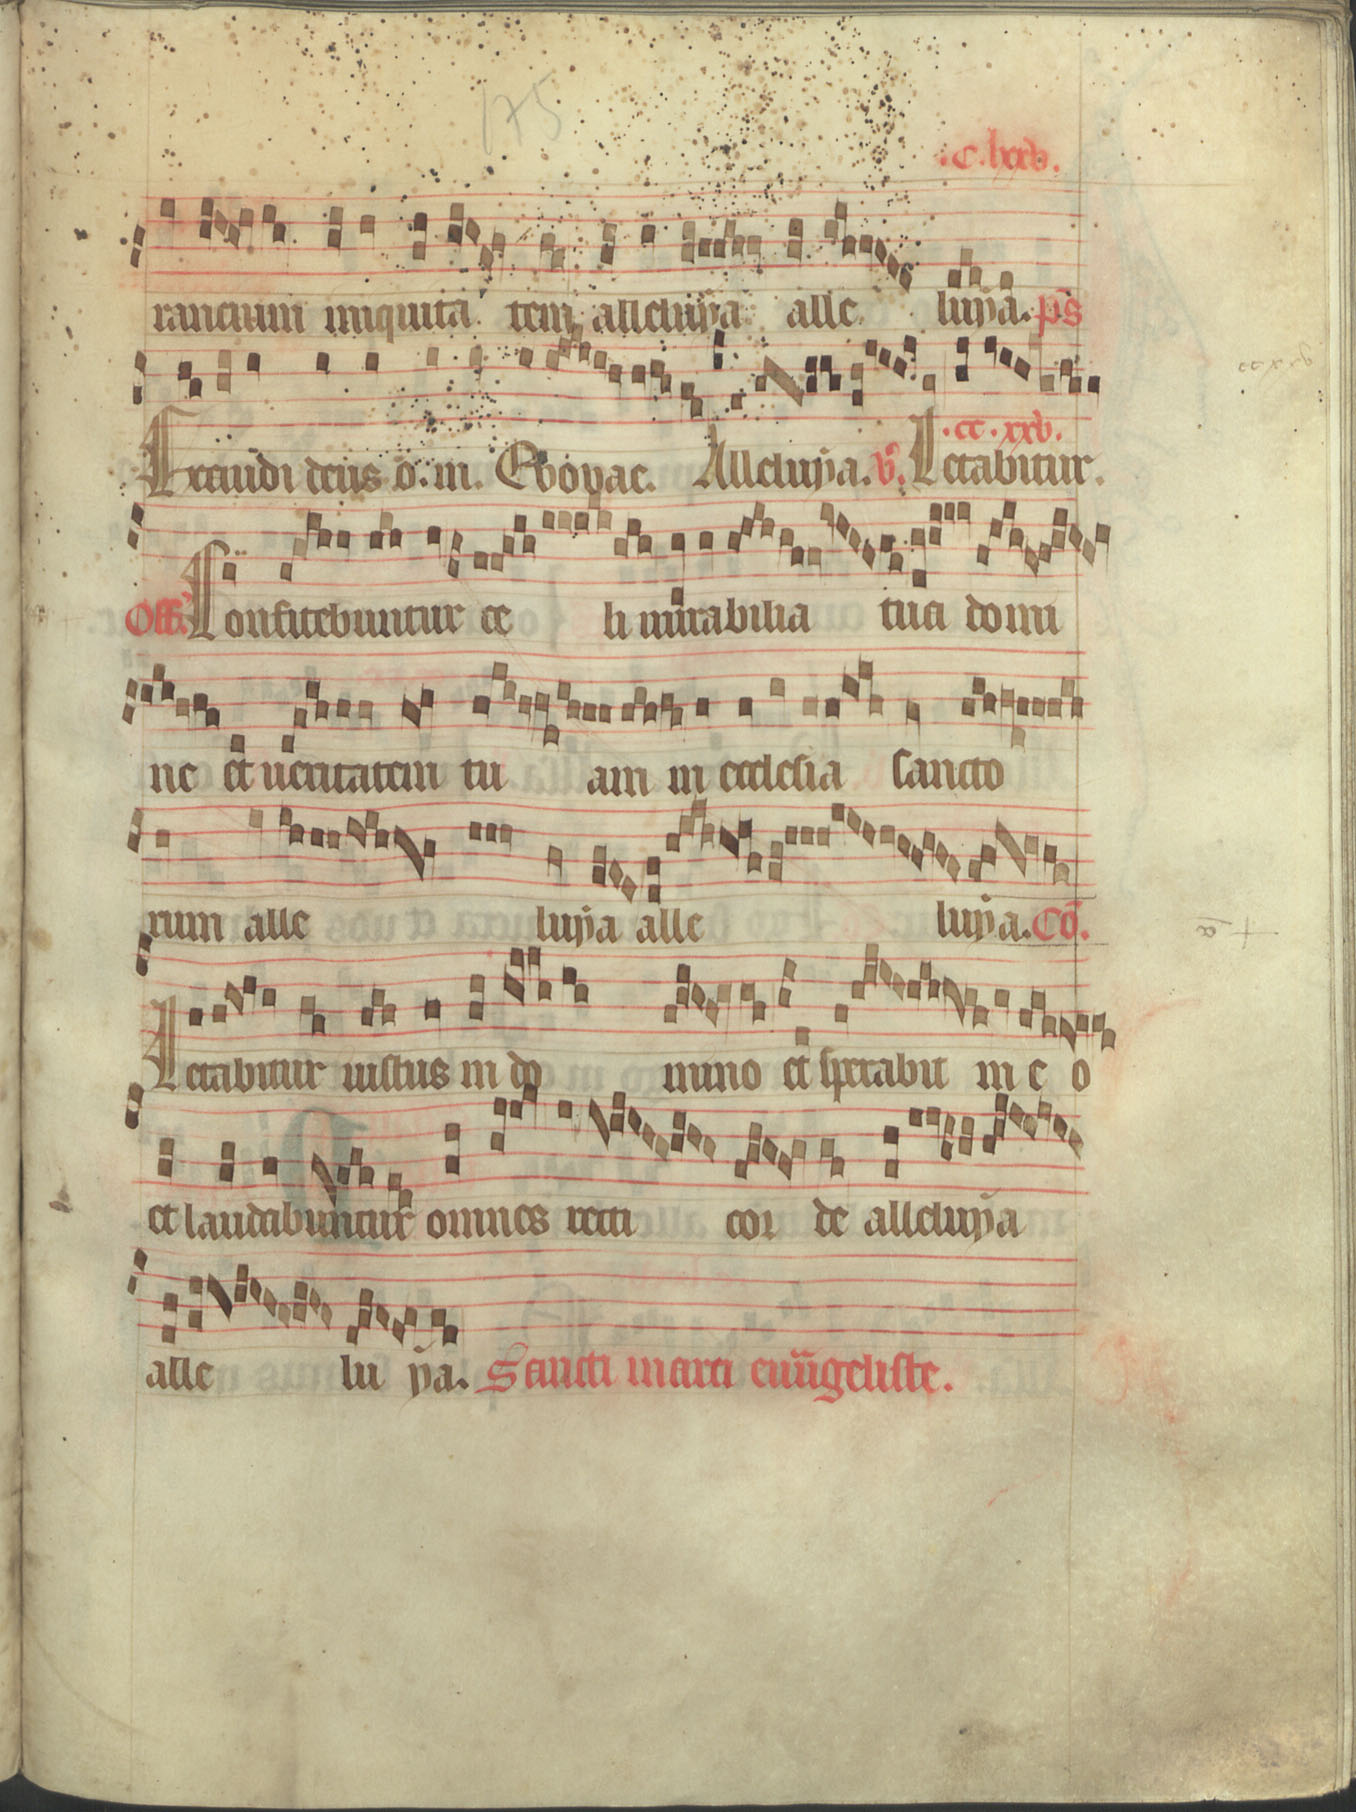 175
.C.lxxv.
rancium iniquita tem alleluÿa alle luÿa. ps
Exaudi deus o. m. Evovae. Alleluÿa. V. Letabitur.
.cc.xxv.
Off. Confitebuntur ce li mirabilia tua domi
ne et ueritatem tu am in ecclesia sancto
rum alle luÿa alle luÿa. Co.
Letabitur iustus in do mino et sperabit in e o
et laudabuntur omnes recti cor de alleluÿa
alle lu ÿa. Sancti marci euungeliste.